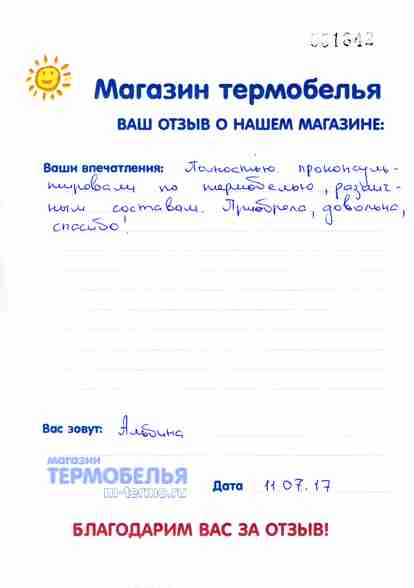 001642
Магазин термобелья
ВАШ ОТЗЫВ О НАШЕМ МАГАЗИНЕ:
Ваши впечатления: Полностью проконсуль-
тировали по термобелью, различ-
ным составам. Приобрела, довольна,
спасибо!
Вас зовут: Альбина
магазин
ТЕРМОБЕЛЬЯ
m-termo.ru
Дата 11.07.17
БЛАГОДАРИМ ВАС ЗА ОТЗЫВ!